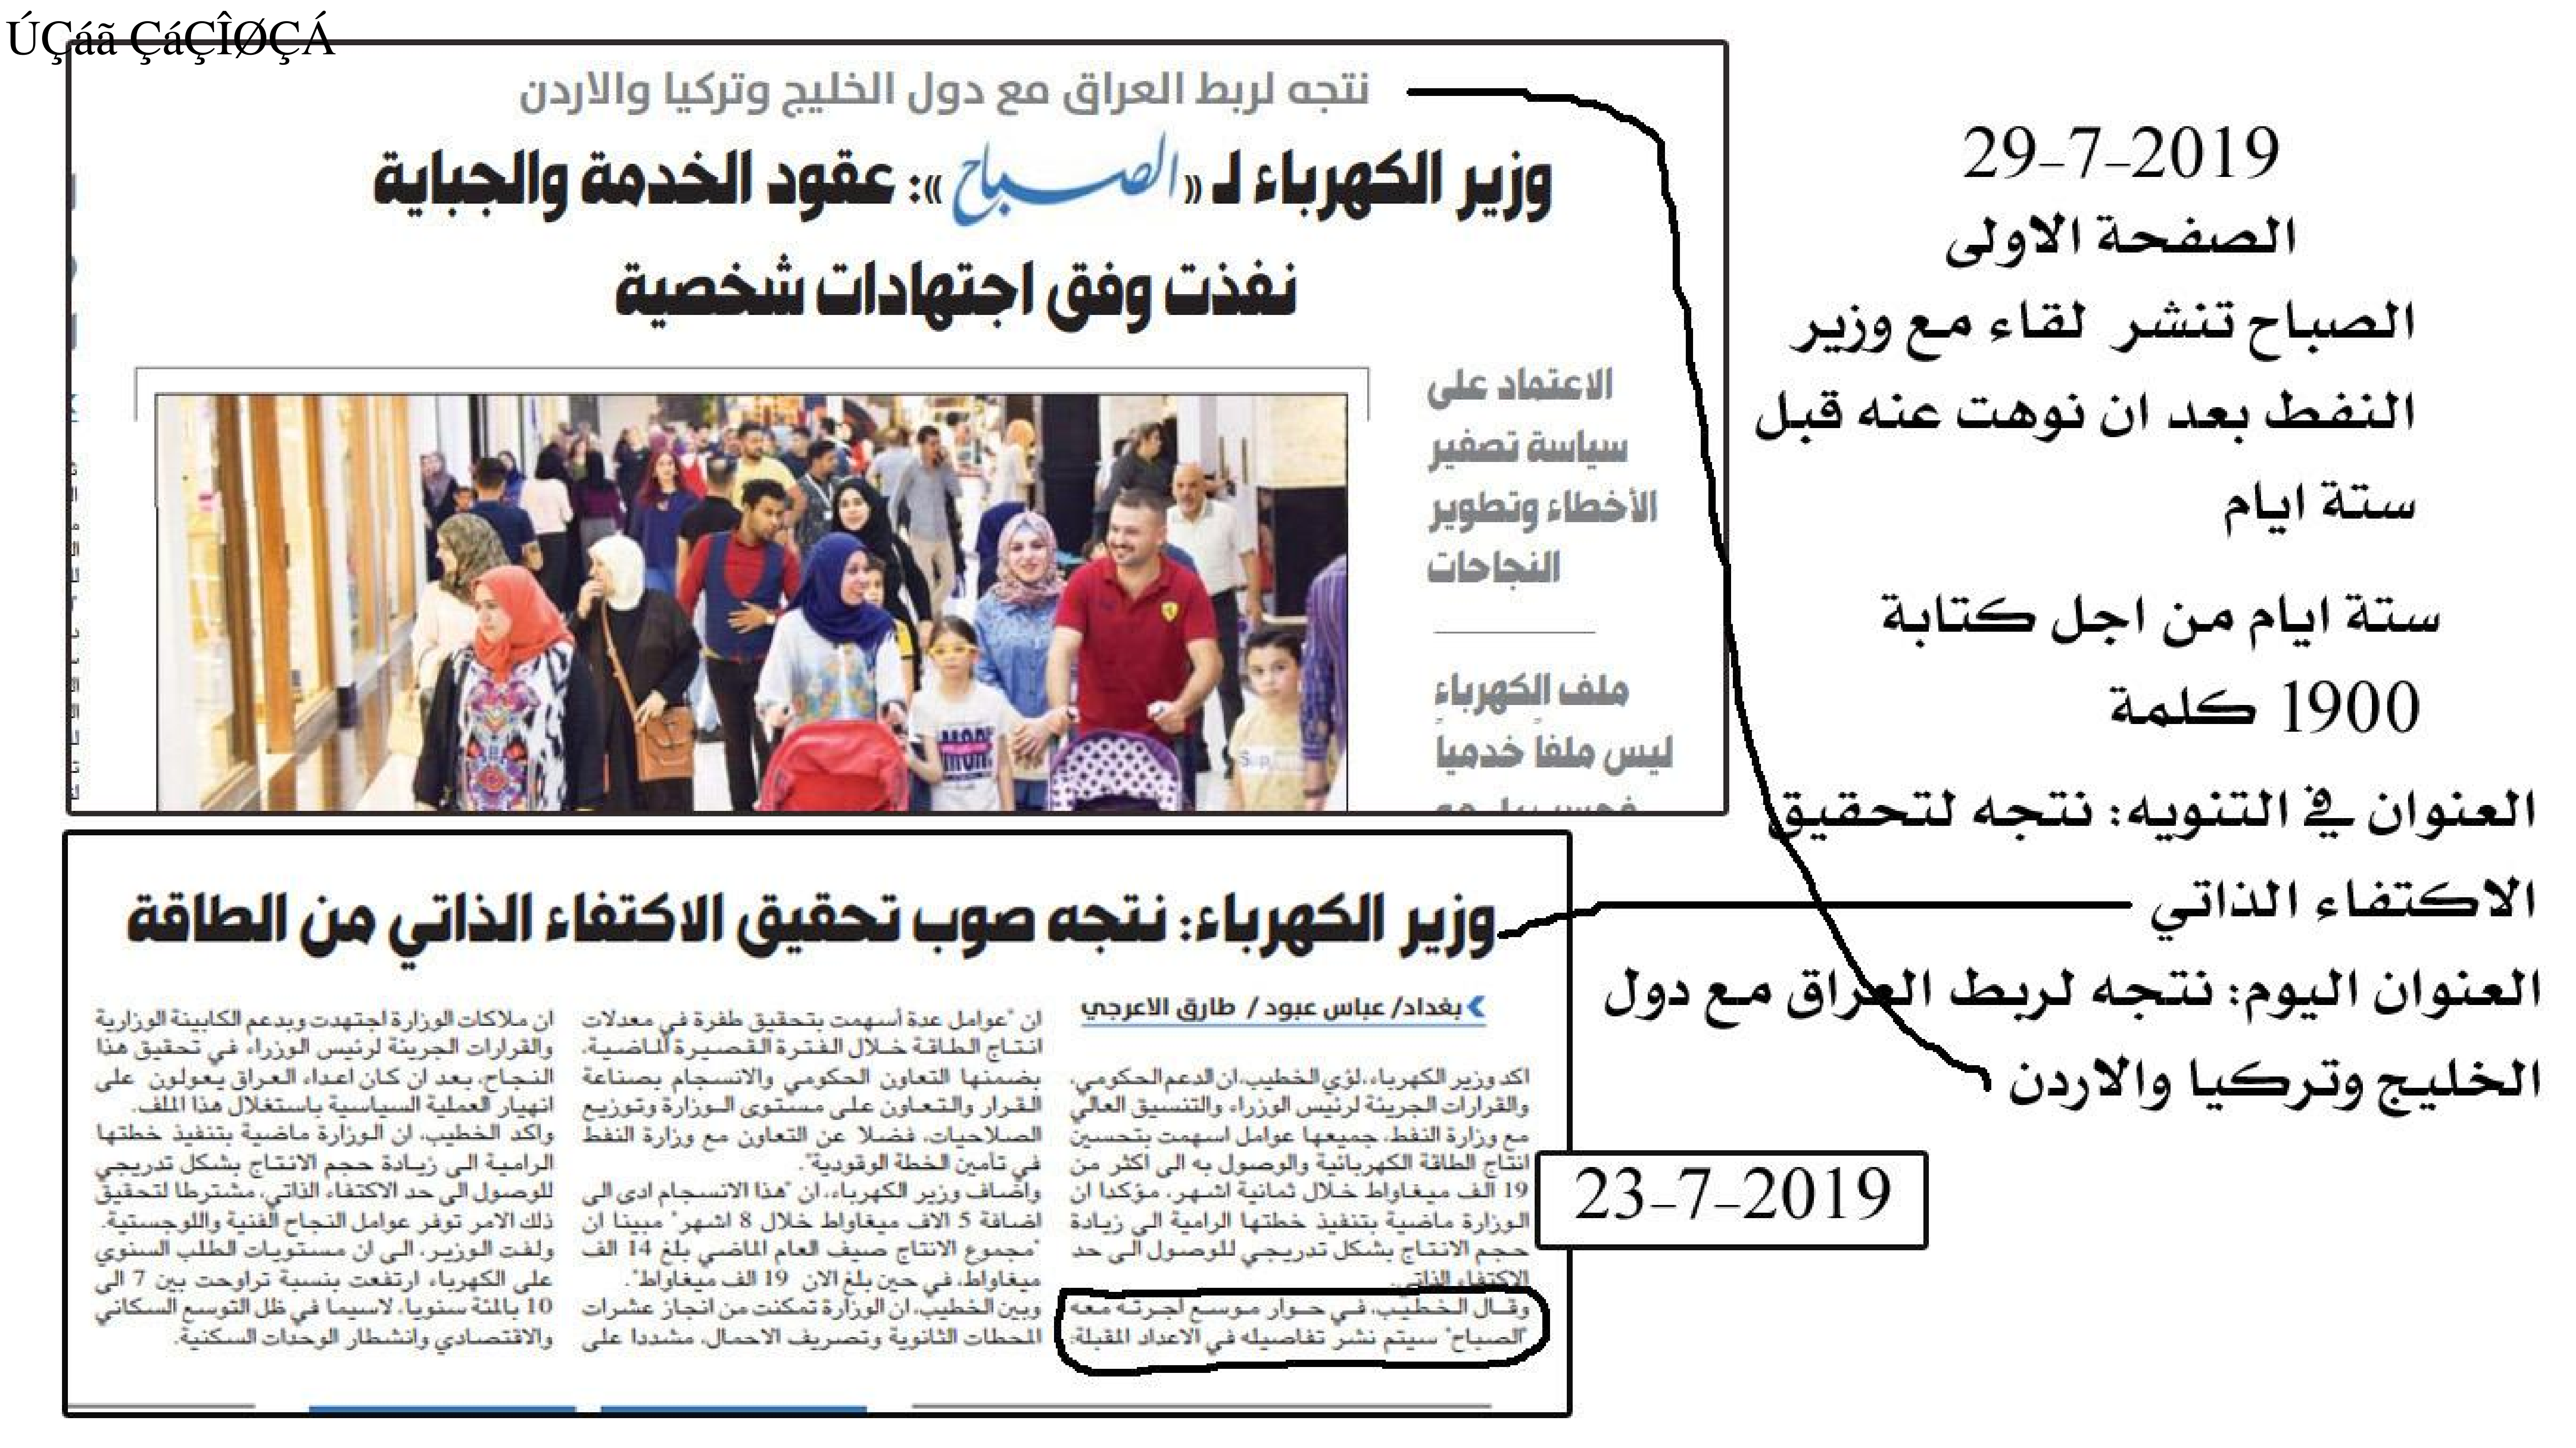 ÚÇáã ÇáÇÎØÇÁ
نتجه لربط العراق مع دول الخليج وتركيا والاردن
وزير الكهرباء لـ «الصباح»: عقود الخدمة والجباية
نفذت وفق اجتهادات شخصية
الاعتماد على
سياسة تصفير
الأخطاء وتطوير
النجاحات
ملف الكهرباء
ليس ملفاً خدمياً
29-7-2019
الصفحة الاولى
الصباح تنشر لقاء مع وزير
النفط بعد ان نوهت عنه قبل
ستة ايام
ستة ايام من اجل كتابة
1900 كلمة
العنوان في التنويه: نتجه لتحقيق
الاكتفاء الذاتي
العنوان اليوم: نتجه لربط العراق مع دول
الخليج وتركيا والاردن
23-7-2019
وزير الكهرباء: نتجه صوب تحقيق الاكتفاء الذاتي من الطاقة
بغداد/ عباس عبود / طارق الاعرجي
اكد وزير الكهرباء، لؤي الخطيب، ان الدعم الحكومي،
والقرارات الجريئة لرئيس الوزراء والتنسيق العالي
مع وزارة النفط، جميعها عوامل اسهمت بتحسين
انتاج الطاقة الكهربائية والوصول به الى اكثر من
19 الف ميغاواط خلال ثمانية اشهر، مؤكدا ان
الوزارة ماضية بتنفيذ خطتها الرامية الى زيادة
حجم الانتاج بشكل تدريجي للوصول الى حد
الاكتفاء الذاتي.
وقال الخطيب، في حوار موسع اجرته معه
"الصباح" سيتم نشر تفاصيله في الاعداد المقبلة:
ان "عوامل عدة أسهمت بتحقيق طفرة في معدلات
انتاج الطاقة خلال الفترة القصيرة الماضية،
بضمنها التعاون الحكومي والانسجام بصناعة
القرار والتعاون على مستوى الوزارة وتوزيع
الصلاحيات، فضلا عن التعاون مع وزارة النفط
في تأمين الخطة الوقودية".
واضاف وزير الكهرباء، ان "هذا الانسجام ادى الى
اضافة 5 الاف ميغاواط خلال 8 اشهر" مبينا ان
"مجموع الانتاج صيف العام الماضي بلغ 14 الف
ميغاواط، في حين بلغ الان 19 الف ميغاواط".
وبين الخطيب، ان الوزارة تمكنت من انجاز عشرات
المحطات الثانوية وتصريف الاحمال، مشددا على
ان ملاكات الوزارة اجتهدت وبدعم الكابينة الوزارية
والقرارات الجريئة لرئيس الوزراء في تحقيق هذا
النجاح، بعد ان كان اعداء العراق يعولون على
انهيار العملية السياسية باستغلال هذا الملف.
واكد الخطيب، ان الوزارة ماضية بتنفيذ خطتها
الرامية الى زيادة حجم الانتاج بشكل تدريجي
للوصول الى حد الاكتفاء الذاتي، مشترطا لتحقيق
ذلك الامر توفر عوامل النجاح الفنية واللوجستية.
ولفت الوزير، الى ان مستويات الطلب السنوي
على الكهرباء ارتفعت بنسبة تراوحت بين 7 الى
10 بالمئة سنويا، لاسيما في ظل التوسع السكاني
والاقتصادي وانشطار الوحدات السكنية.